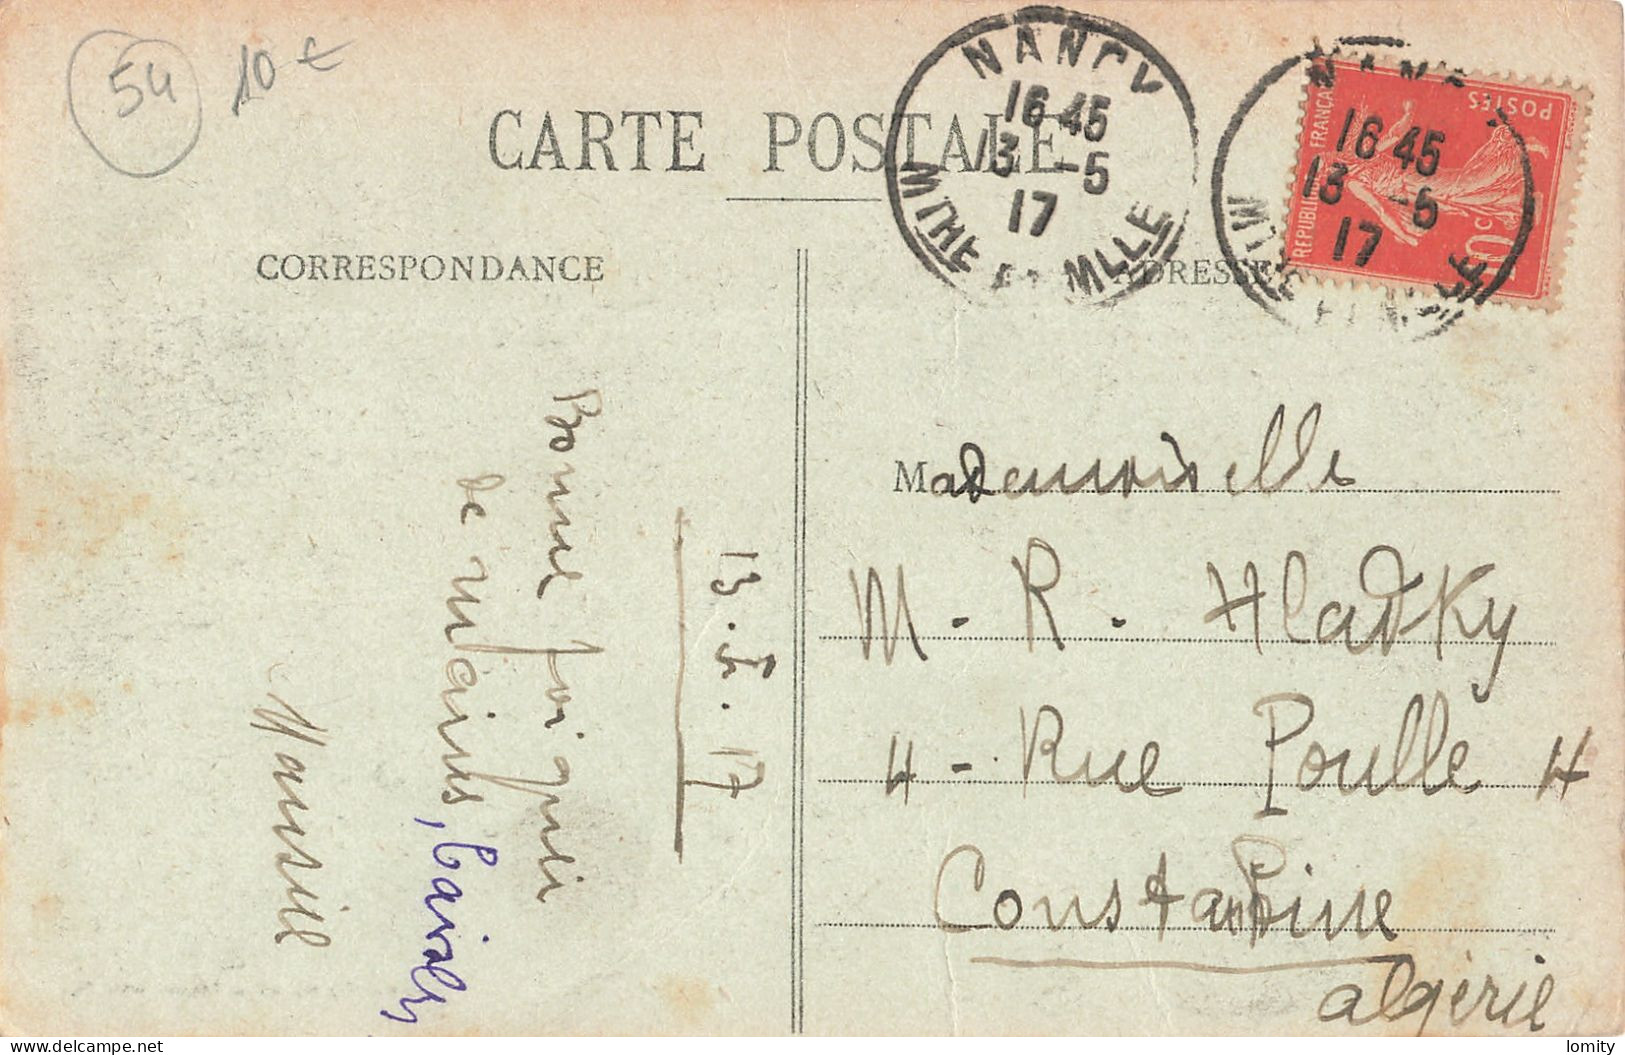 54
10 €
CARTE POSTALE
CORRESPONDANCE
ADRESSE
NANCY
16 45
13 -5
17
MTHE ET MLLE
REPUBLIQUE FRANÇAISE
POSTES
10 c
16 45
13 -5
17
13.5.17
Bonne poignée
de mains,
Maurice
Mademoiselle
M - R. Hladky
4 - Rue Poulle 4
Constantine
Algérie
delcampe.net
lomity